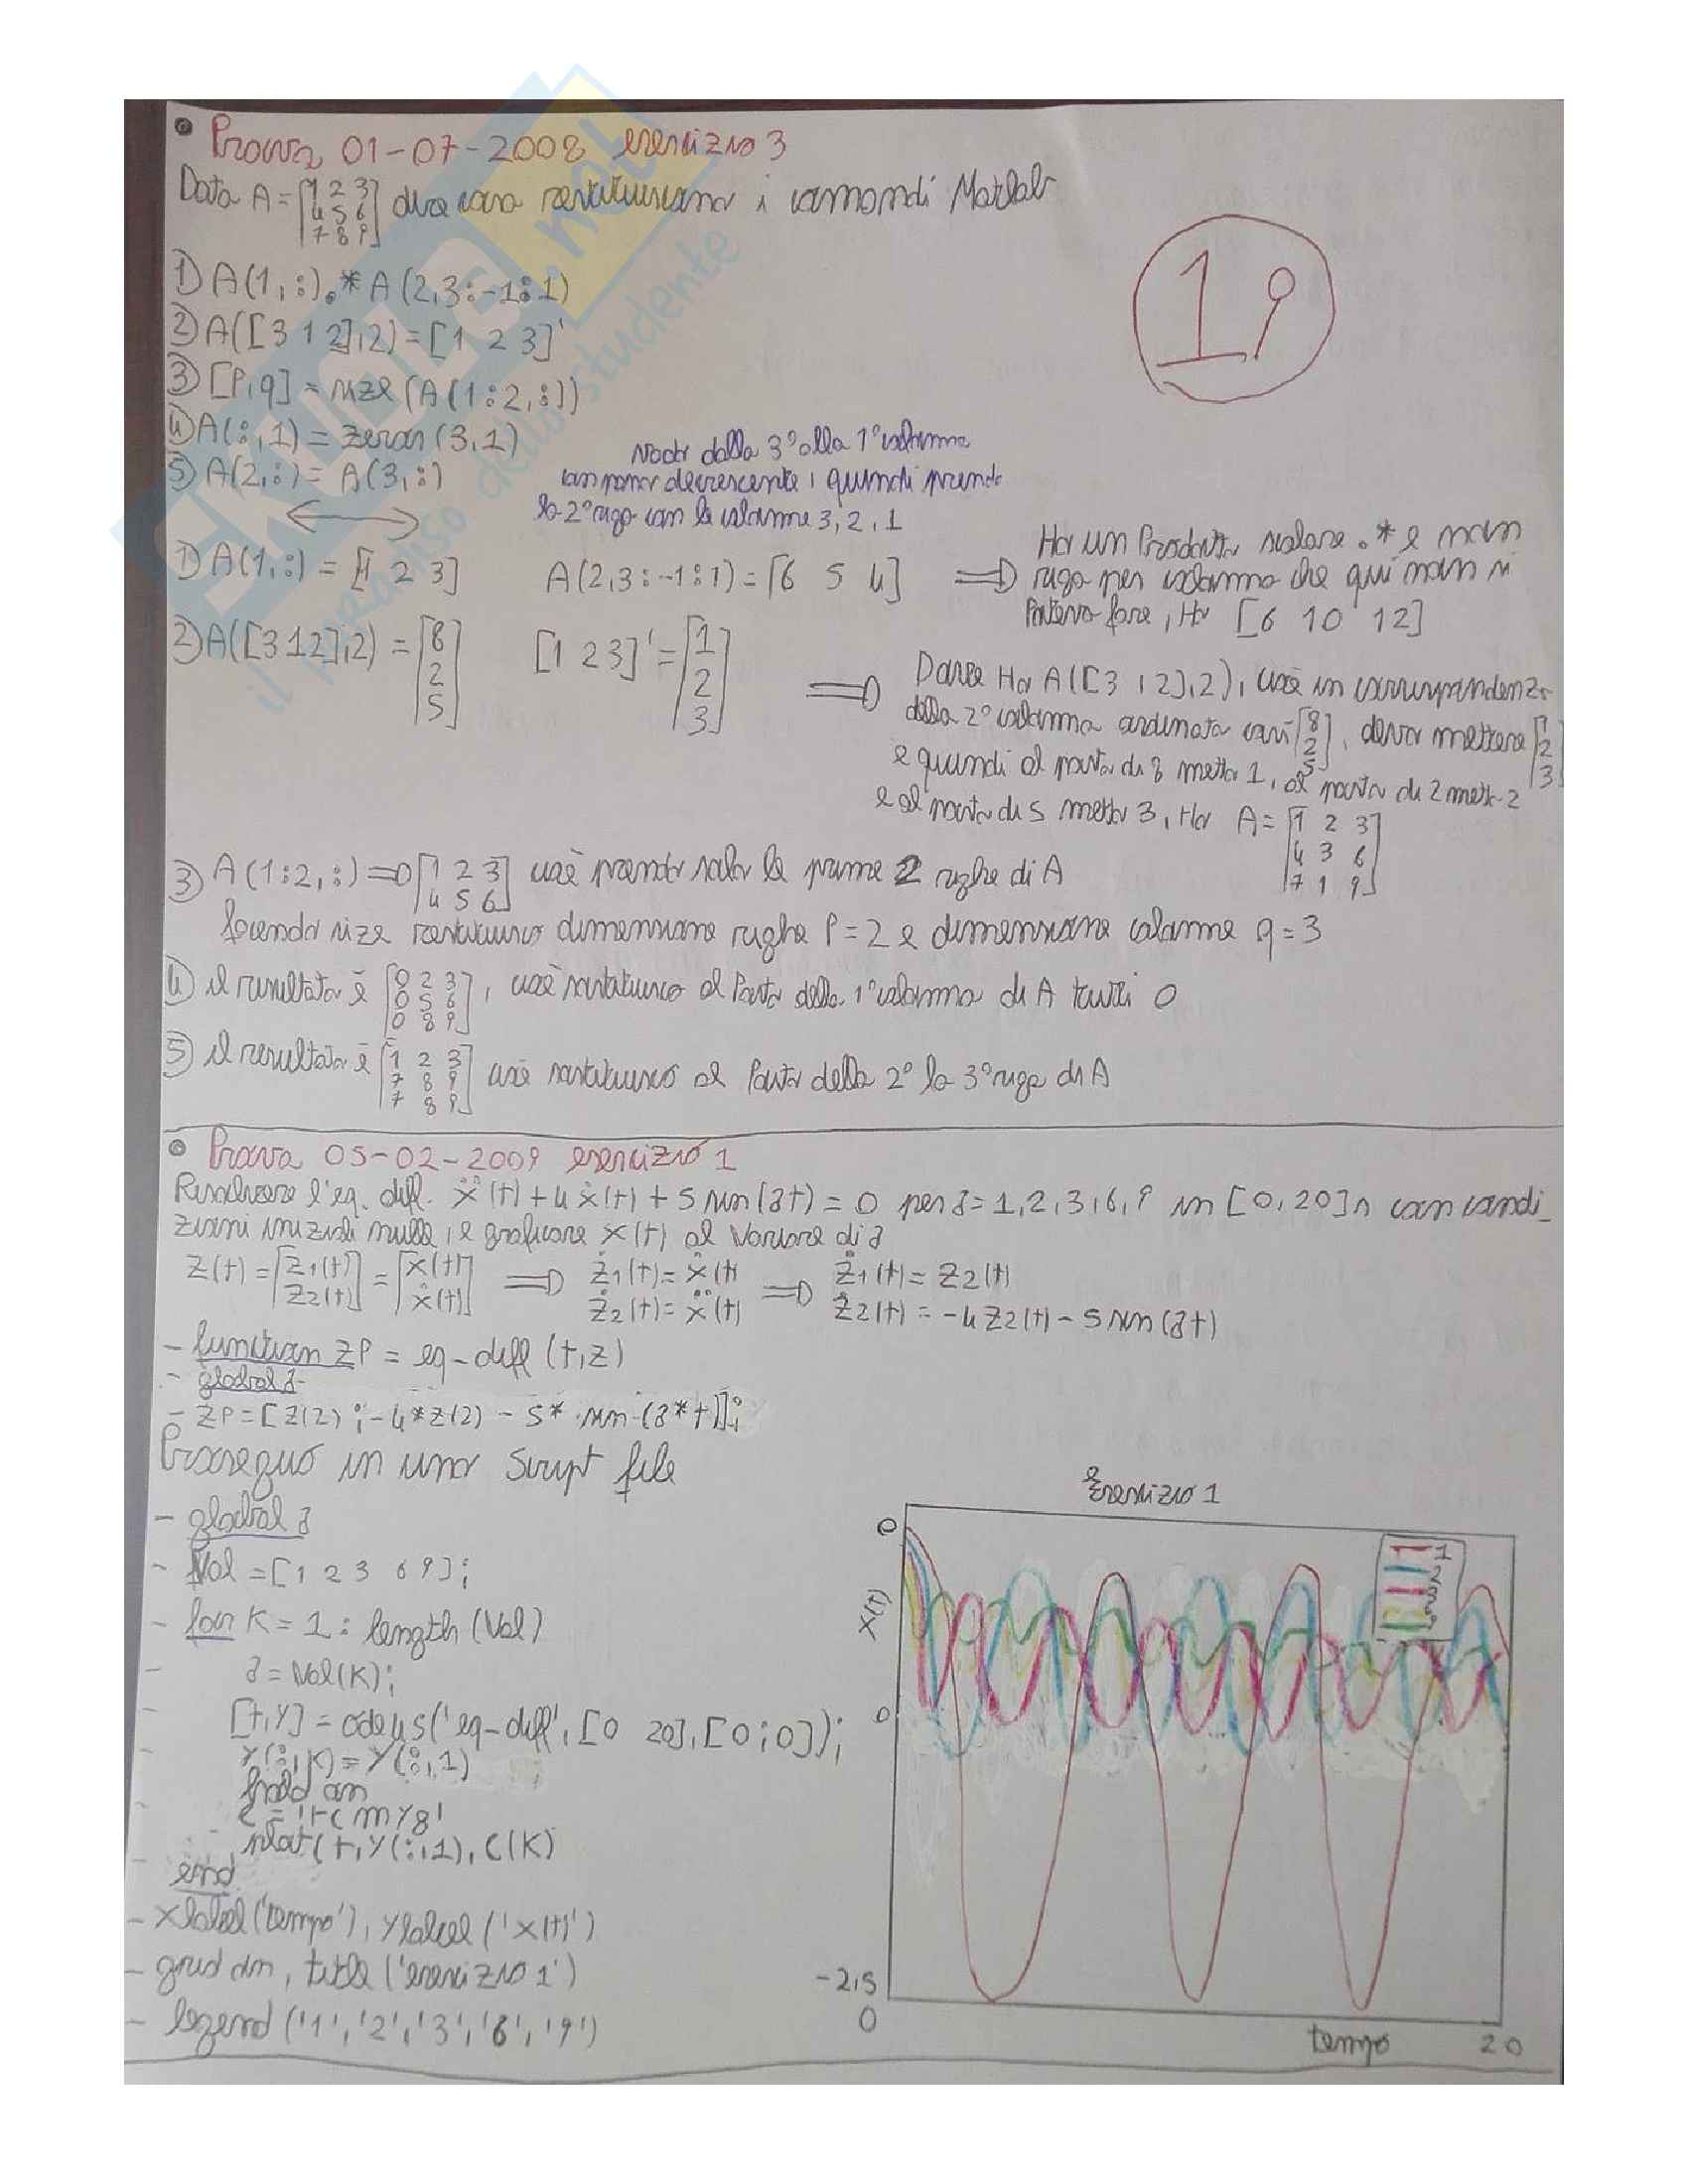 • Prova 01-07-2008 esercizio 3
Data A = [1 2 3
4 5 6
7 8 9] dire cosa restituiscono i comandi Matlab
1) A(1,:).*A(2,3:-1:1)
2) A([3 1 2],2) = [1 2 3]'
3) [p,q] = size(A(1:2,:))
4) A(:,1) = zeros(3,1)
5) A(2,:) = A(3,:)
1)
vado dalla 3° alla 1° colonna
con passo decrescente, quindi prendo
la 2° riga con le colonne 3, 2, 1
1) A(1,:) = [1 2 3] A(2,3:-1:1) = [6 5 4] ⇒ Ho un Prodotto scalare .* e non
riga per colonna che qui non si
Poteva fare, Ho [6 10 12]
2) A([3 1 2],2) = [8
2
5] [1 2 3]' = [1
2
3] ⇒ Dove Ho A([3 1 2],2), cioè in corrispondenza
della 2° colonna ordinata così [8
2
5], devo mettere [1
2
3]
e quindi al posto di 8 metto 1, al posto di 2 metto 2
e al posto di 5 metto 3, Ho A = [1 2 3
4 3 6
7 1 9]
3) A(1:2,:) ⇒ [1 2 3
4 5 6] cioè prendo solo le prime 2 righe di A
facendo size restituisco dimensione righe P = 2 e dimensione colonne q = 3
4) il risultato è [0 2 3
0 5 6
0 8 9], cioè sostituisco al Posto della 1° colonna di A tutti 0
5) il risultato è [1 2 3
7 8 9
7 8 9] cioè sostituisco al Posto della 2° la 3° riga di A
• Prova 05-02-2009 esercizio 1
Risolvere l'eq. diff. ẍ(t) + 4ẋ(t) + 5 sin(at) = 0 per a = 1, 2, 3, 6, 9 in [0, 20]s con condi_
zioni iniziali nulle, e graficare x(t) al variare di a
Z(t) = [Z1(t)
Z2(t)] = [x(t)
ẋ(t)] ⇒ Ż1(t) = ẋ(t) ⇒ Ż1(t) = Z2(t)
Ż2(t) = ẍ(t) Ż2(t) = -4Z2(t) - 5 sin(at)
- function ZP = eq-diff(t,z)
- global a
- ZP = [Z(2) ; -4*Z(2) - 5* sin(a*t)];
Proseguo in uno Script file
- global a
- Val = [1 2 3 6 9];
- for K = 1 : length(Val)
- a = Val(K);
[t,Y] = ode45('eq-diff', [0 20], [0;0]);
- Y(:,K) = Y(:,1)
hold on
- c = 'rcmyg'
- plot(t,Y(:,1),c(K)
end
- xlabel('tempo'), ylabel('x(t)')
- grid on, title('esercizio 1')
- legend('1','2','3','6','9')
Esercizio 1
0
x(t)
0
-2,5
0
tempo
20
1
2
3